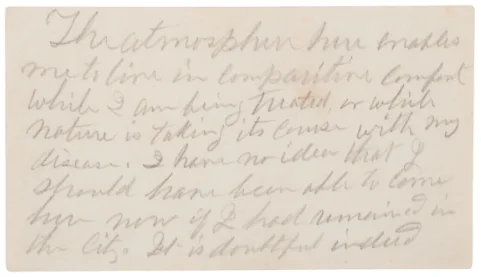 The atmosphere here enables
me to live in comparitive comfort
while I am being treated, or while
nature is taking its course with my
disease. I have no idea that I
should have been able to come
here now if I had remained in
the City. It is doubtful indeed